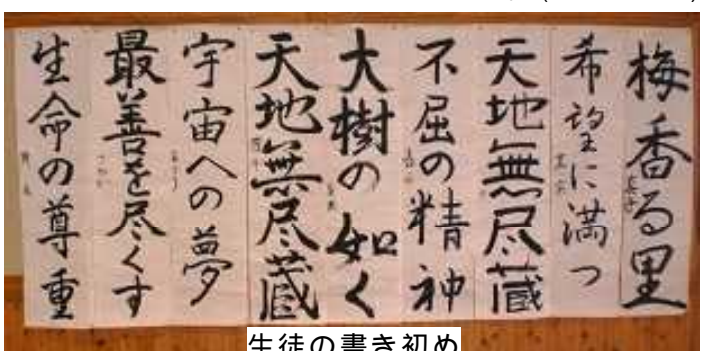 梅香る里
希望に満つ
天地無尽蔵
不屈の精神
大樹の如く
天地無尽蔵
宇宙への夢
最善を尽くす
生命の尊重
生徒の書き初め